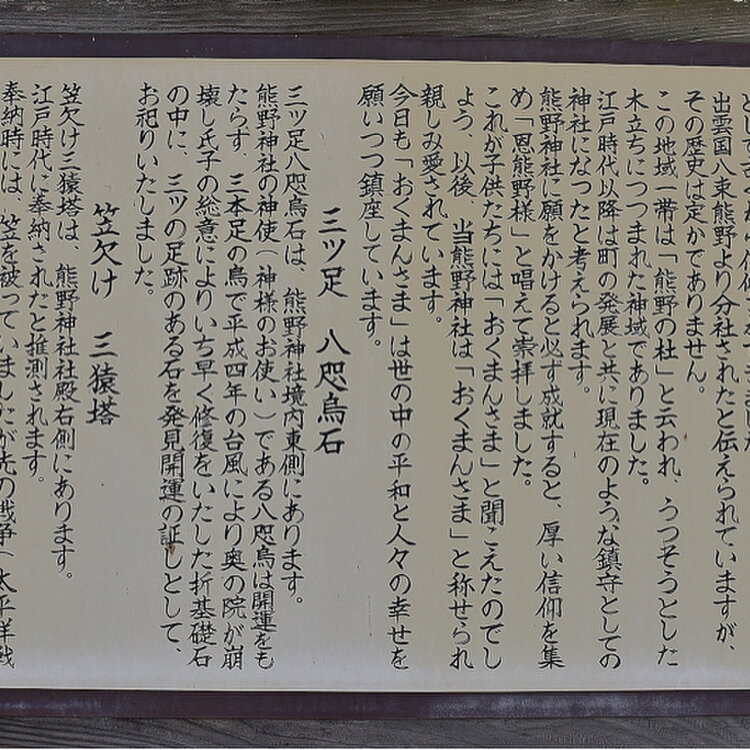 出雲国八束熊野より分社されたと伝えられていますが、
その歴史は定かでありません。
この地域一帯は「熊野の杜」と云われ、うつそうとした
木立ちにつつまれた神域でありました。
江戸時代以降は町の発展と共に現在のような鎮守としての
神社になったと考えられます。
熊野神社に願をかけると必ず成就すると、厚い信仰を集
め「恩熊野様」と唱えて崇拝しました。
これが子供たちには「おくまんさま」と聞こえたのでし
よう、以後、当熊野神社は「おくまんさま」と称せられ
親しみ愛されています。
今日も「おくまんさま」は世の中の平和と人々の幸せを
願いつつ鎮座しています。
三ツ足 八咫烏石
三ツ足八咫烏石は、熊野神社境内東側にあります。
熊野神社の神使(神様のお使い)である八咫烏は開運をも
たらす、三本足の鳥で平成四年の台風により奥の院が崩
壊し氏子の総意によりいち早く修復をいたした折基礎石
の中に、三ツの足跡のある石を発見開運の証しとして、
お祀りいたしました。
笠欠け 三猿塔
笠欠け三猿塔は、熊野神社社殿右側にあります。
江戸時代に奉納されたと推測されます。
奉納時には、笠を被っていましたが先の戦争(太平洋戦